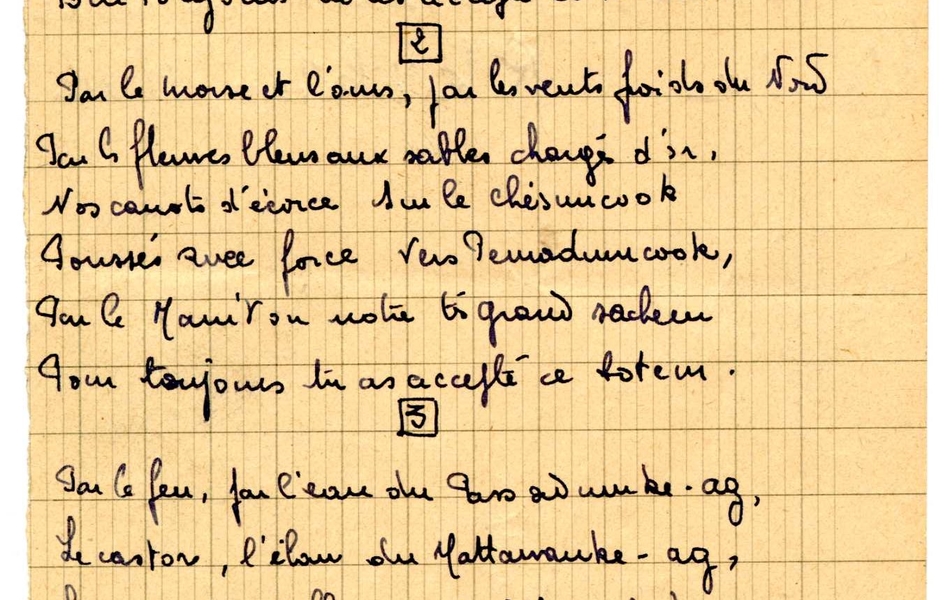 Pour toujours tu as accepté ce
2
Par le morse et l'ours, par les vents froids du Nord
Par ls fleuves bleus aux sables chargés d'or,
Nos canots d'écorce sur le chésuncook
Poussés avec force vers Pemadumcook,
Par le Manitou notre très grand sachem
Pour toujours tu as accepté ce totem.
3
Par le feu, par l'eau du Passadumke-ag,
Le castor, l'élan du Mattawamke-ag,